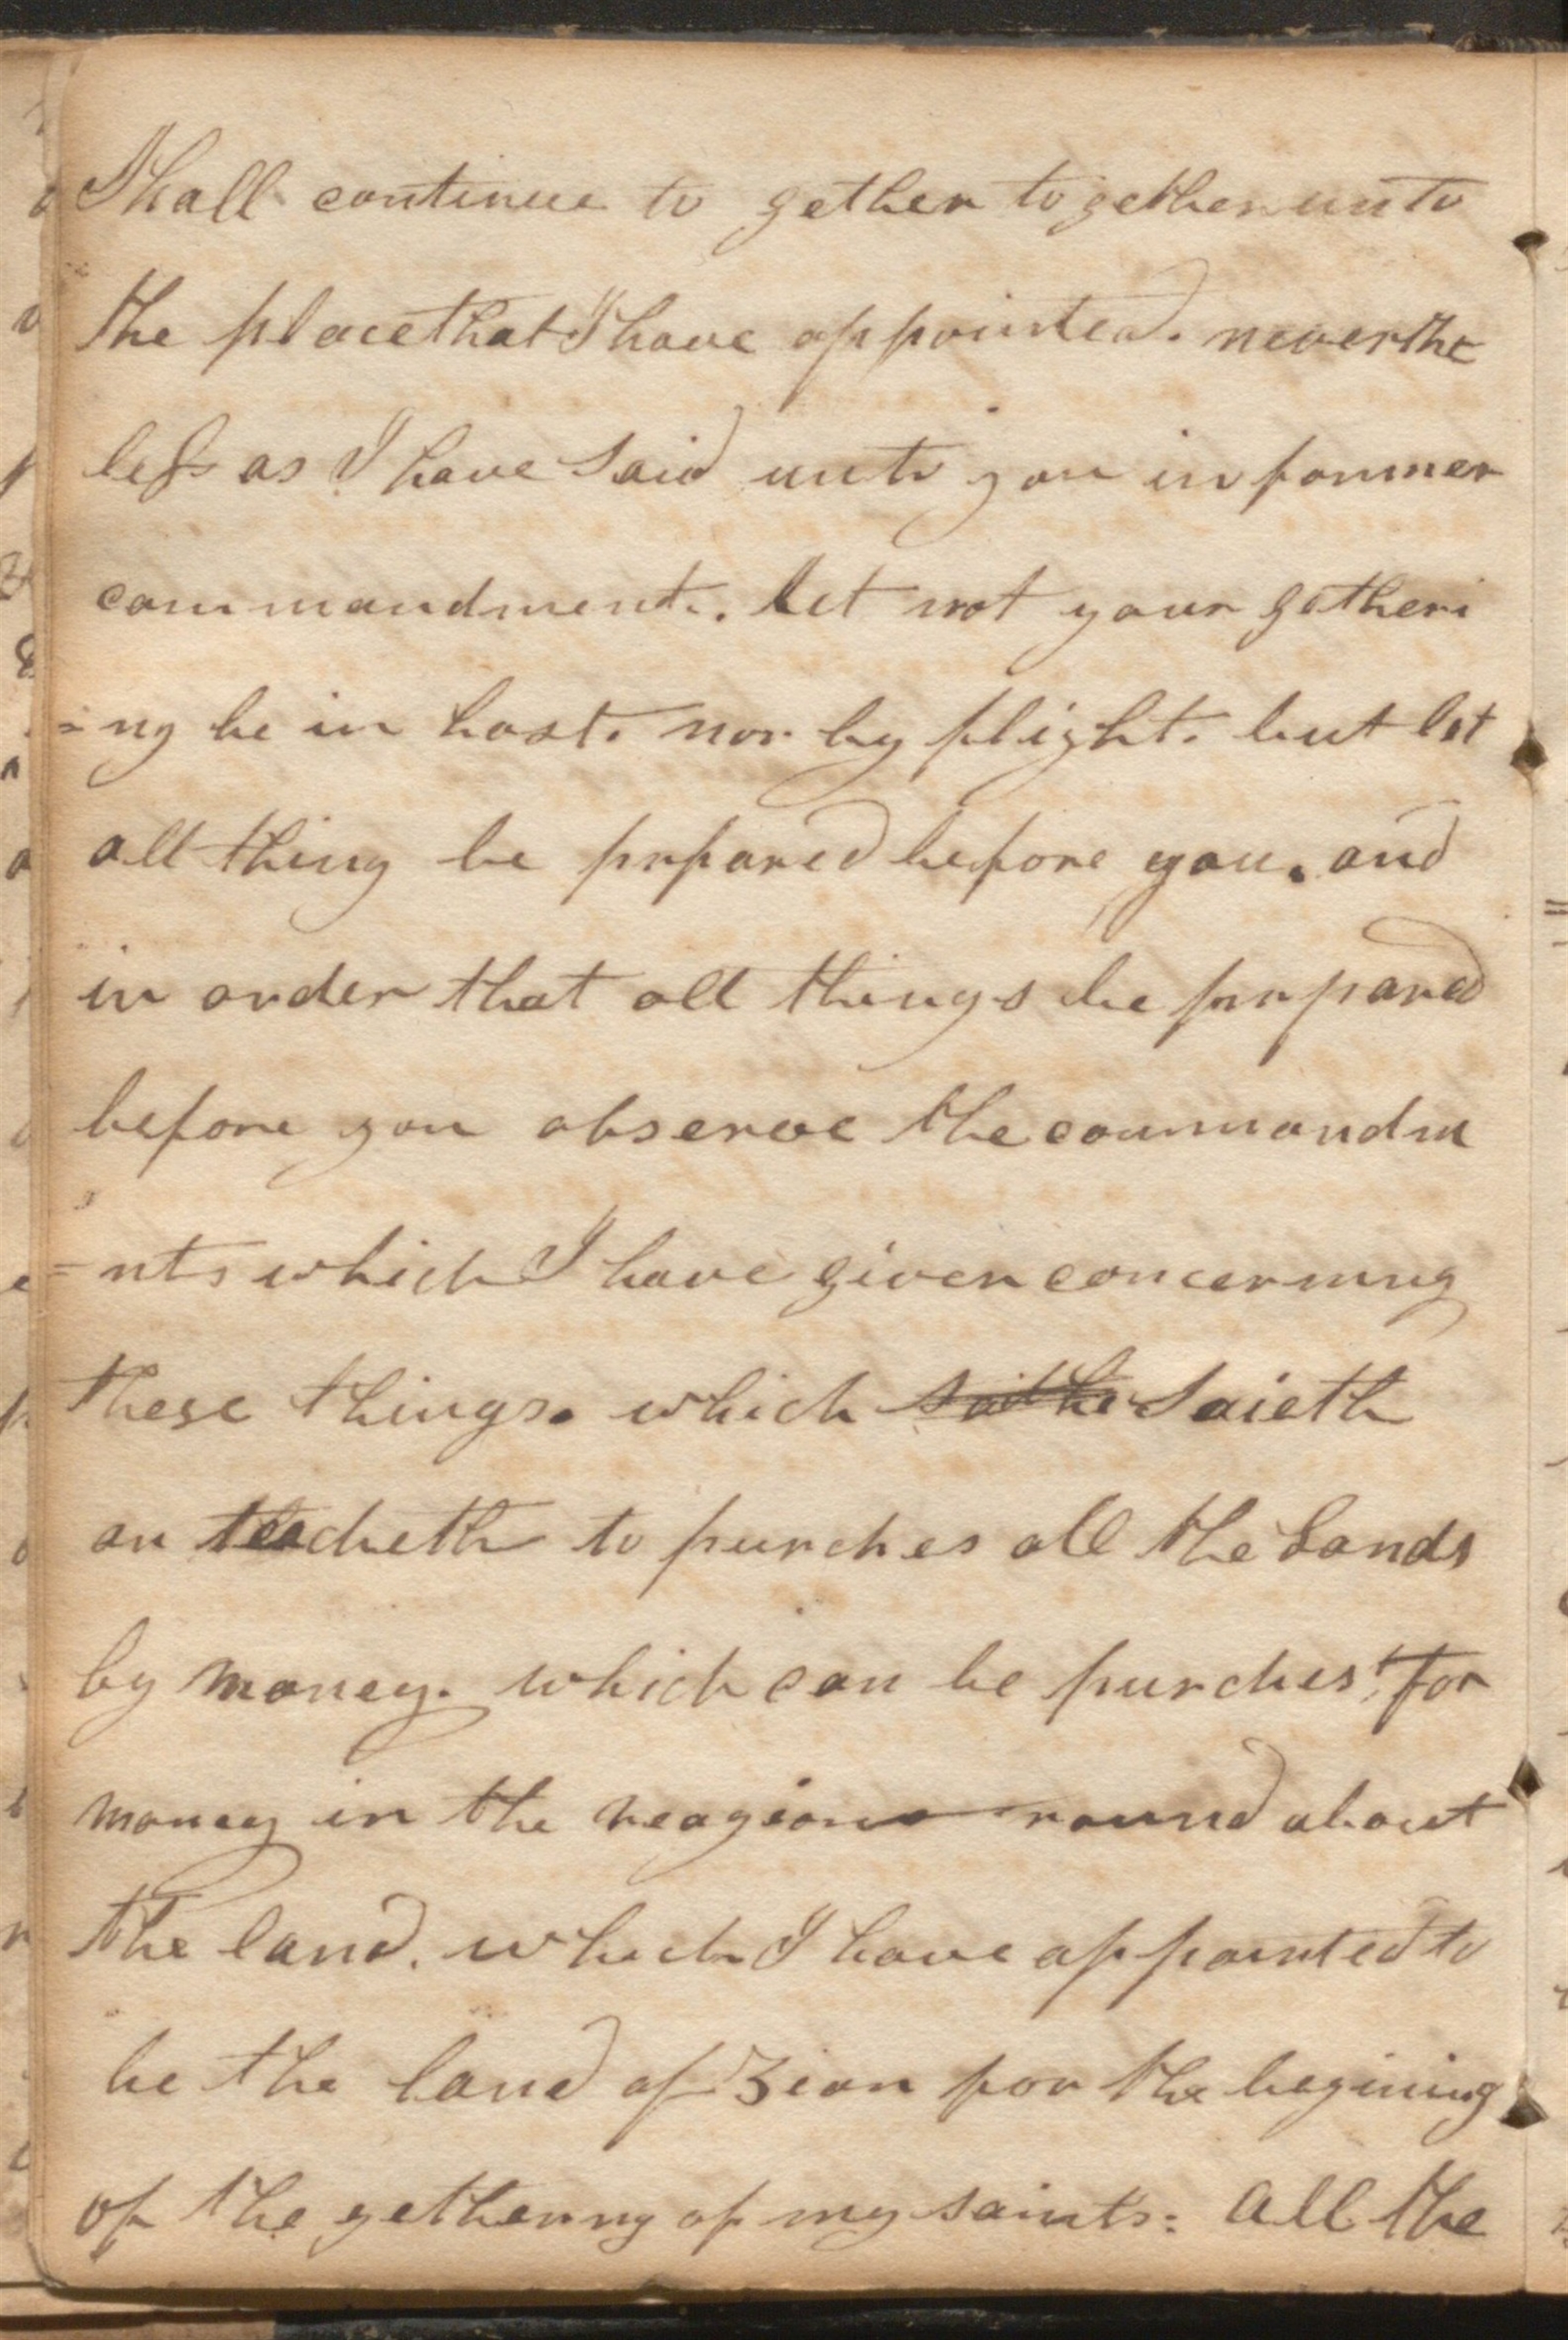 Shall continue to gether together unto
the place that I have appointed. neverthe
less as I have Said unto you in former
commandment. let not your getheri
=ng be in hast. nor by flight. but let
all thing be prpared before you. and
in order that all things be prpared
before you observe the commandm
=nts which I have given concerning
these things. which saithe Saieth
an teacheth to purches all the Lands
by money. which can be purchest for
money in the reagions round about
the land. which I have appointed to
be the land of Zion for the begining
of the gethering of my saints: all the